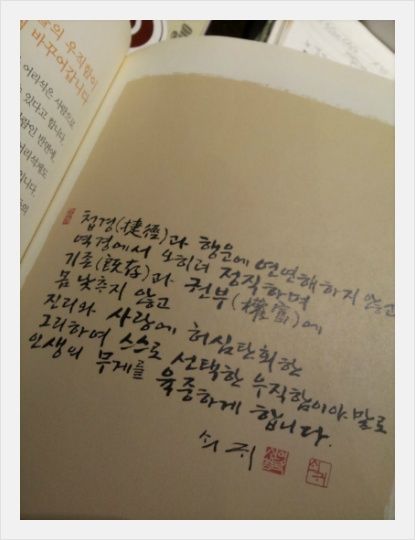 의 우직함이
바꾸어갑니다
어리석은 사람으로
있다고 합니다.
첩경(捷徑)과 행운에 연연해하지 않고
역경에서 오히려 정직하며
기존(旣存)과 권부(權富)에
몸 낮추지 않고
진리와 사랑에 허심탄회한
그리하여 스스로 선택한 우직함이야말로
인생의 무게를 육중하게 합니다.
쇠귀